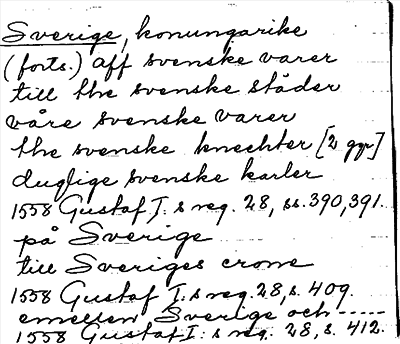 Sverige, konungarike
(forts.) aff svenske varer
till the svenske städer
våre svenske varer
the svenske knechter [2 ggr]
duglige svenske karler
1558 Gustaf I:s reg. 28, ss. 390, 391.
på Sverige
till Sveriges crone
1558 Gustaf I:s reg. 28, s. 409.
emellen Sverige och -----
1558 Gustaf I:s reg. 28, s. 412.